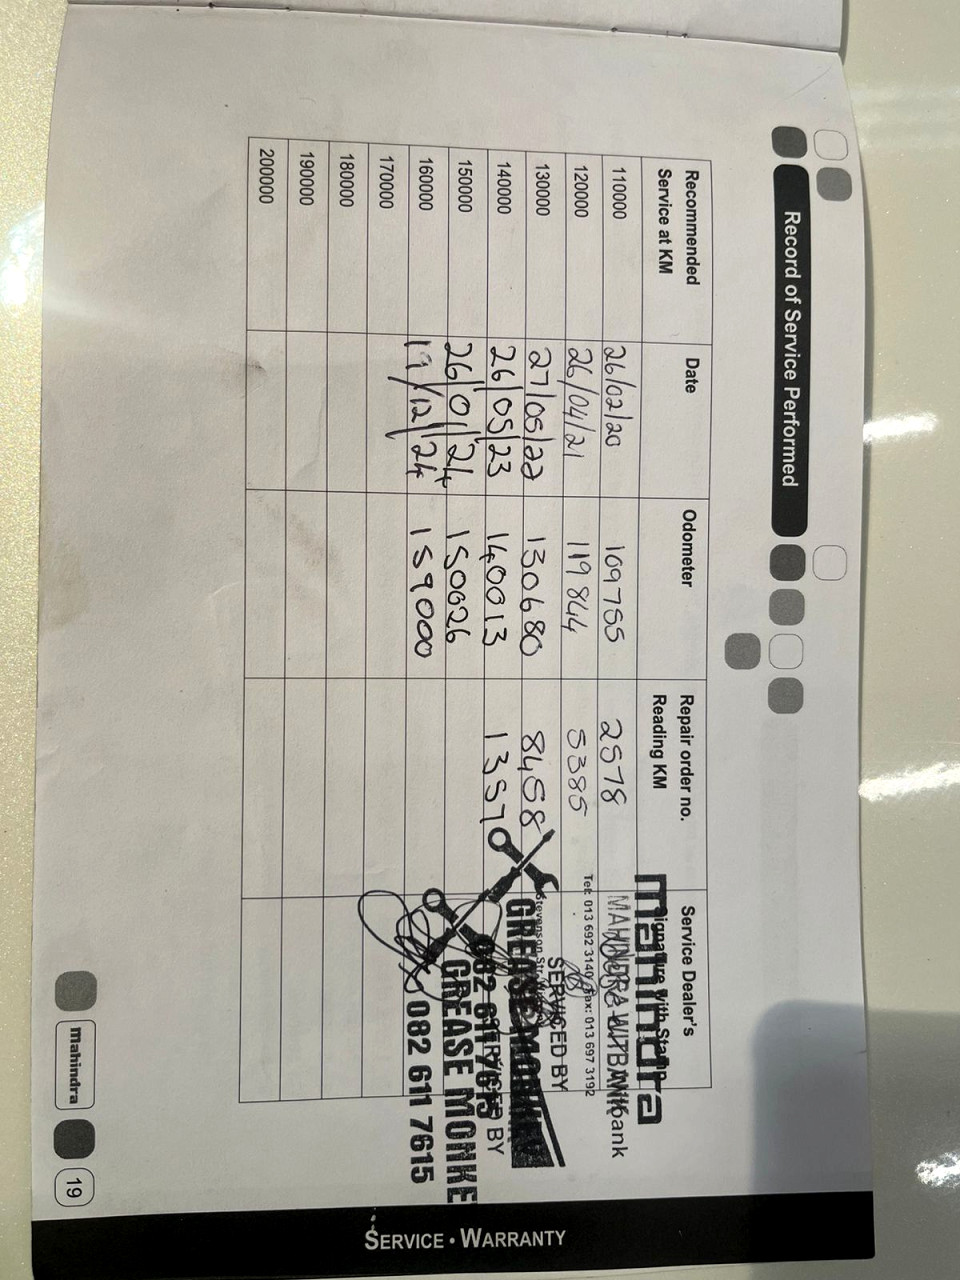 Record of Service Performed
Recommended Service at KM Date Odometer Repair order no. Reading KM Service Dealer's Signature with Stamp
110000 26/02/20 109755 2578
120000 26/04/21 119844 5385
130000 27/05/22 130680 8458
140000 26/05/23 140013 1357
150000 26/01/24 150026
160000 19/12/24 159000
170000
180000
190000
200000
mahindra
MAHINDRA WITBANK
Tel: 013 692 3140 Fax: 013 697 3192
SERVICED BY
GREASE MONKEY
082 611 7615
SERVICED BY
GREASE MONKE
082 611 7615
Mahindra
19
SERVICE • WARRANTY